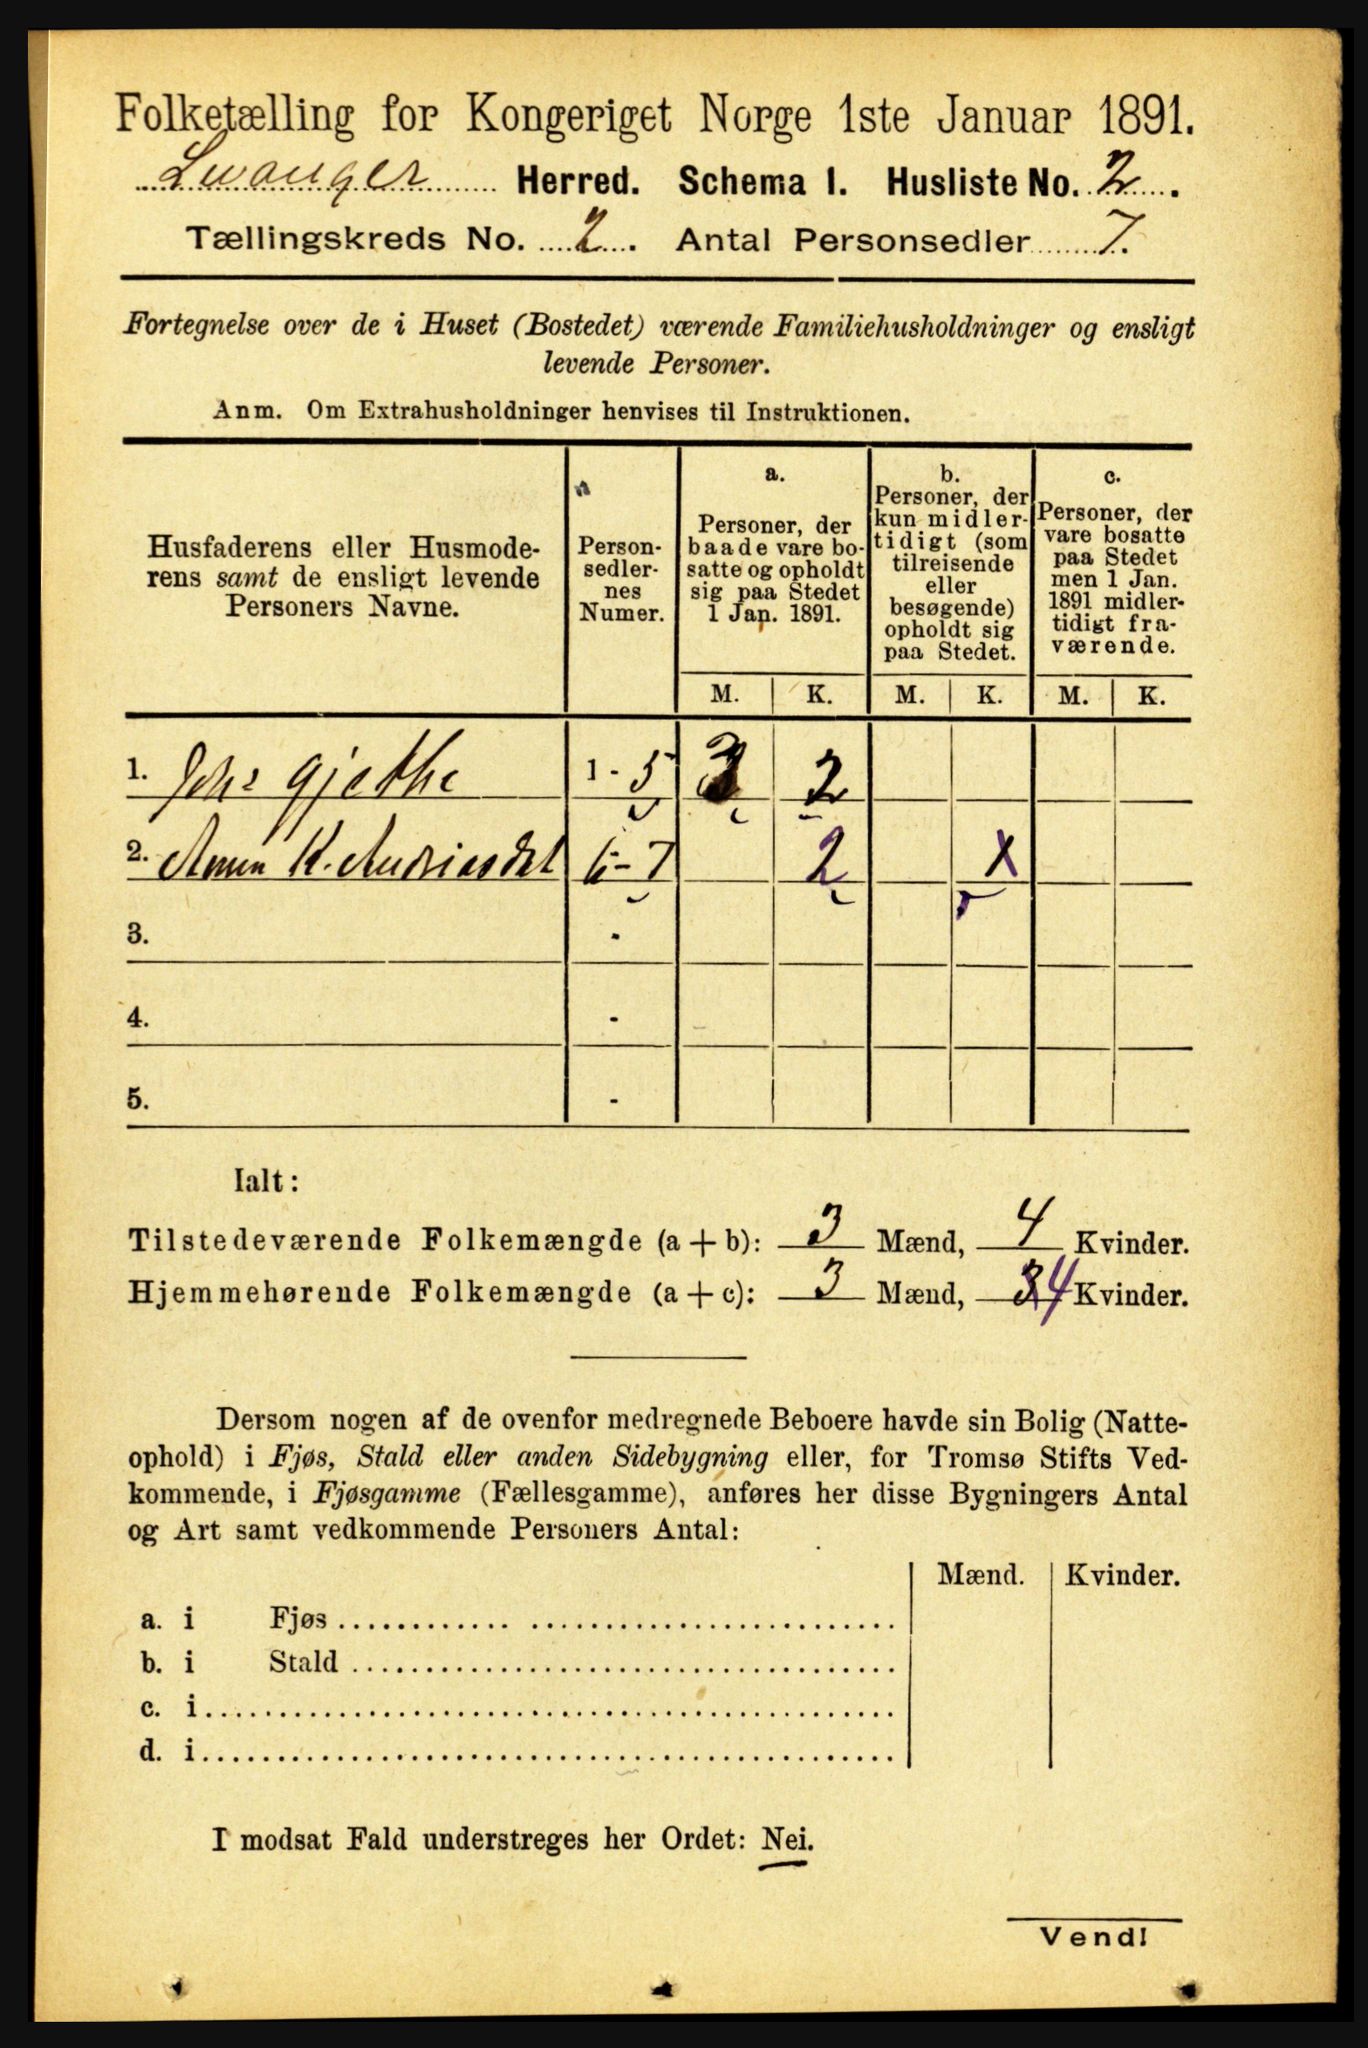 Folketælling for Kongeriget Norge 1ste Januar 1891.
Herred. Schema 1. Husliste No. 2.
Tællingskreds No. 2. Antal Personsedler 7.
Fortegnelse over de i Huset (Bostedet) værende Familiehusholdninger og ensligt
levende Personer.
Anm. Om Extrahusholdninger henvises til Instruktionen.
Husfaderens eller Husmode-
rens samt de ensligt levende
Personers Navne.
Person-
sedler-
nes
Numer.
a.
Personer, der
baade vare bo-
satte og opholdt
sig paa Stedet
1 Jan. 1891.
b.
Personer, der
kun midler-
tidigt (som
tilreisende
eller
besøgende)
opholdt sig
paa Stedet.
c.
Personer, der
vare bosatte
paa Stedet
men 1 Jan.
1891 midler-
tidigt fra-
værende.
M. K. M. K. M. K.
1. Gjethe 1 - 5 3 2
2. Anna K. Andriesdet 6 - 7 2 X
3. -
4. -
5. -
Ialt:
Tilstedeværende Folkemængde (a + b): 3 Mænd, 4 Kvinder.
Hjemmehørende Folkemængde (a + c): 3 Mænd, 3 4 Kvinder.
Dersom nogen af de ovenfor medregnede Beboere havde sin Bolig (Natte-
ophold) i Fjøs, Stald eller anden Sidebygning eller, for Tromsø Stifts Ved-
kommende, i Fjøsgamme (Fællesgamme), anføres her disse Bygningers Antal
og Art samt vedkommende Personers Antal:
Mænd. Kvinder.
a. i Fjøs
b. i Stald
c. i
d. i
I modsat Fald understreges her Ordet: Nei.
Vend!